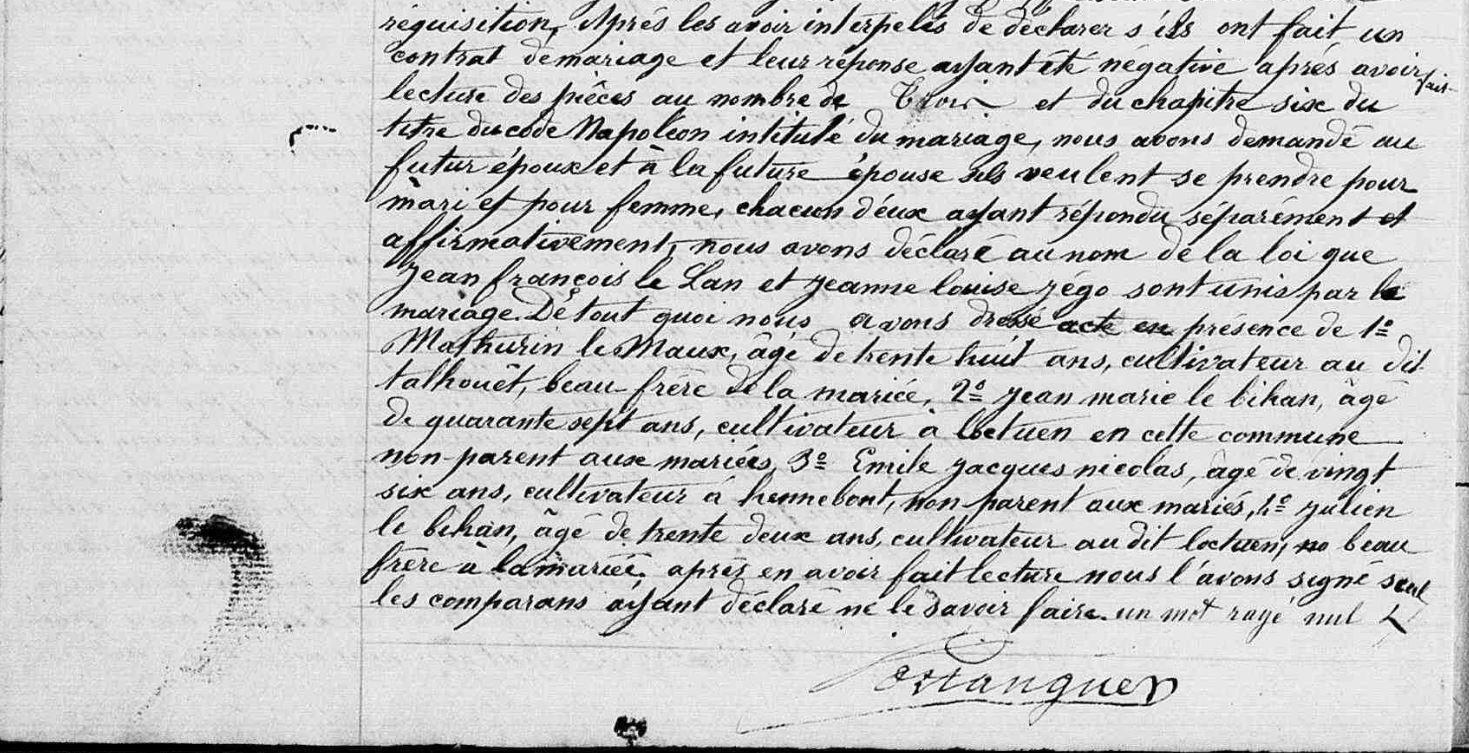 réquisition, Après les avoir interpelés de déclarer s'ils ont fait un
contrat de mariage et leur réponse ayant été négative après avoir fait
lecture des pièces au nombre de Trois et du chapitre six du
titre du code Napoléon intitulé du mariage, nous avons demandé au
futur époux et à la future épouse s'ils veulent se prendre pour
mari et pour femme, chacun d'eux ayant répondu séparément et
affirmativement, nous avons déclaré au nom de la loi que
Jean françois le Lan et Jeanne louise Jégo sont unis par le
mariage. De tout quoi nous avons dressé acte en présence de 1º
Mathurin le Maux, âgé de trente huit ans, cultivateur au dit
talhouët, beau-frère de la mariée, 2º Jean marie le bihan, âgé
de quarante sept ans, cultivateur à loctuen en cette commune
non-parent aux mariés, 3º Emile Jacques nicolas, âgé de vingt
six ans, cultivateur à hennebont, non-parent aux mariés, 4º Julien
le bihan, âgé de trente deux ans, cultivateur au dit loctuen, beau
frère à la mariée, après en avoir fait lecture nous l'avons signé seul
les comparans ayant déclaré ne le savoir faire. un mot rayé nul